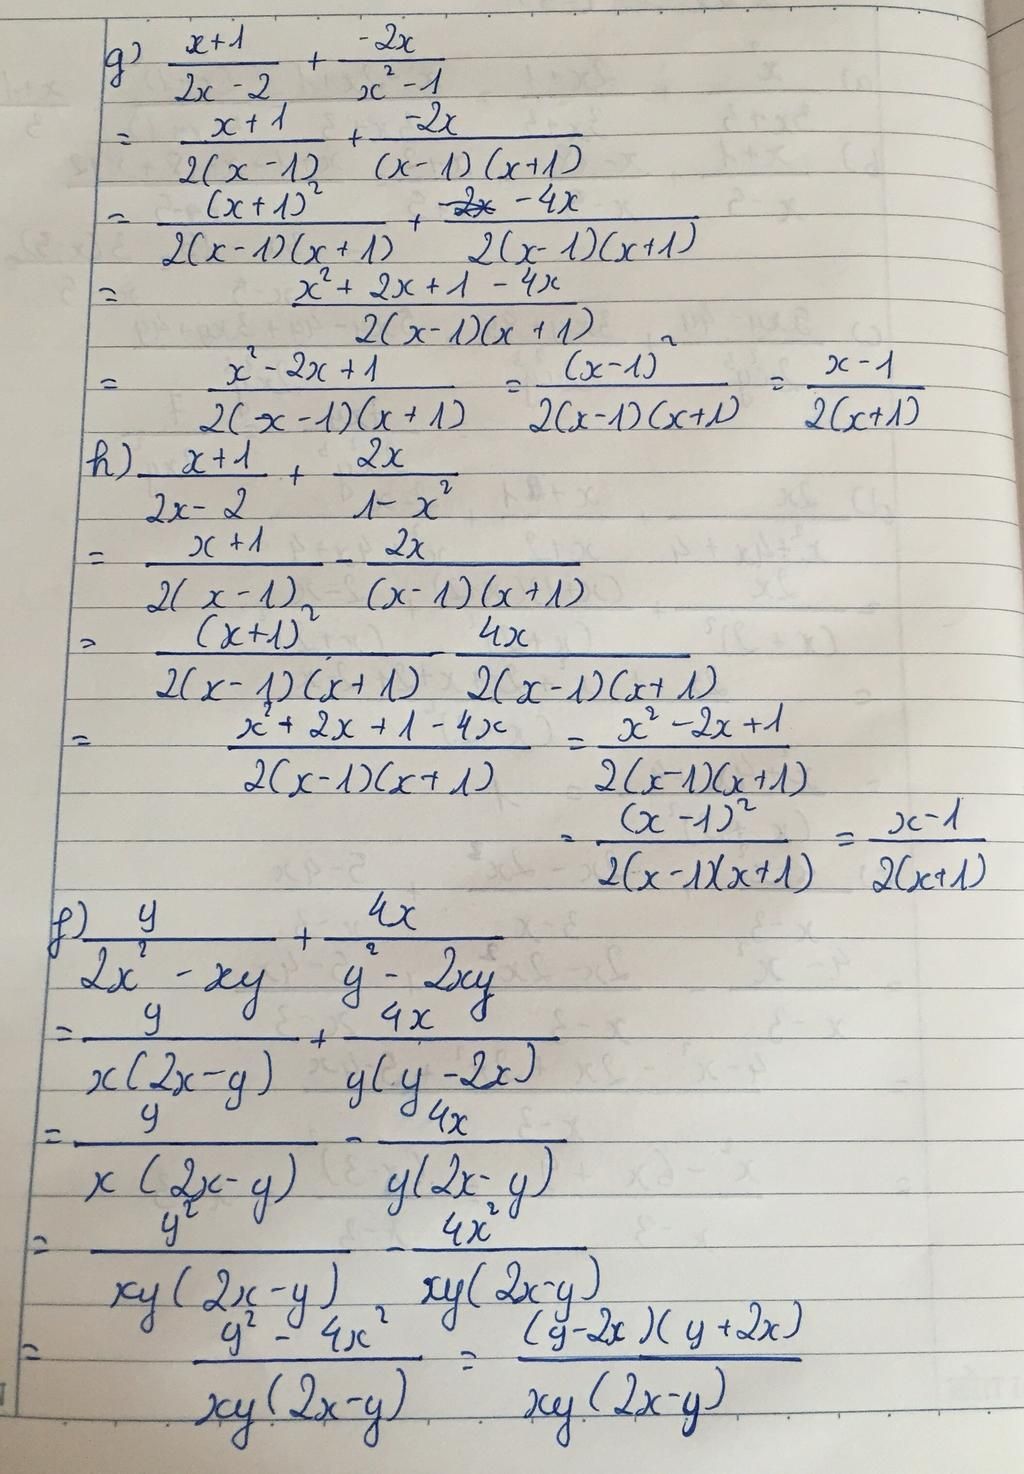 g) (x+1)/(2x-2) + (-2x)/(x²-1)
= (x+1)/(2(x-1)) + (-2x)/((x-1)(x+1))
= (x+1)²/(2(x-1)(x+1)) + (-2x -4x)/(2(x-1)(x+1))
= (x²+2x+1-4x)/(2(x-1)(x+1))
= (x²-2x+1)/(2(x-1)(x+1)) = (x-1)²/(2(x-1)(x+1)) = (x-1)/(2(x+1))
h) (x+1)/(2x-2) + 2x/(1-x²)
= (x+1)/(2(x-1)) - 2x/((x-1)(x+1))
= (x+1)²/(2(x-1)(x+1)) - 4x/(2(x-1)(x+1))
= (x²+2x+1-4x)/(2(x-1)(x+1)) = (x²-2x+1)/(2(x-1)(x+1))
= (x-1)²/(2(x-1)(x+1)) = (x-1)/(2(x+1))
f) y/(2x²-xy) + 4x/(y²-2xy)
= y/(x(2x-y)) + 4x/(y(y-2x))
= y/(x(2x-y)) - 4x/(y(2x-y))
= y²/(xy(2x-y)) - 4x²/(xy(2x-y))
= (y²-4x²)/(xy(2x-y)) = (y-2x)(y+2x)/(xy(2x-y))